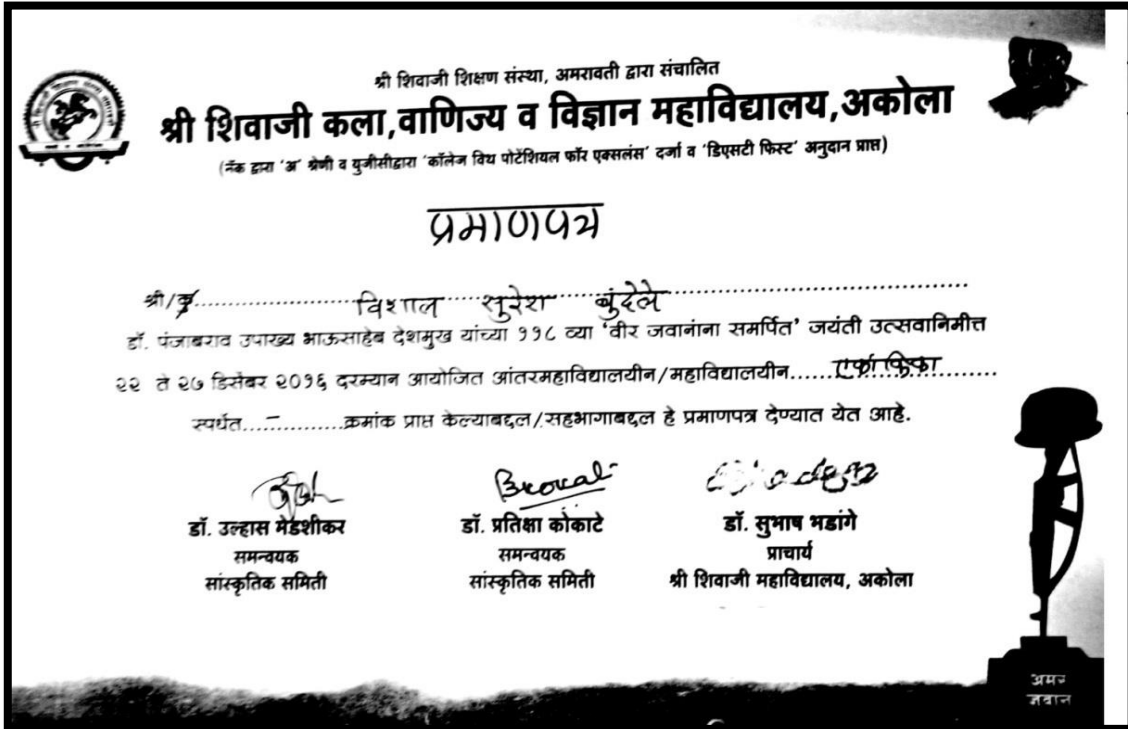 श्री शिवाजी शिक्षण संस्था, अमरावती द्वारा संचालित
श्री शिवाजी कला,वाणिज्य व विज्ञान महाविद्यालय,अकोला
(नॅक द्वारा 'अ' श्रेणी व युजीसीद्वारा 'कॉलेज विथ पोटेंशियल फॉर एक्सलंस' दर्जा व 'डिएसटी फिस्ट' अनुदान प्राप्त)
प्रमाणपत्र
श्री/कु.......विशाल सुरेश बुंदेले.......
डॉ. पंजाबराव उपाख्य भाऊसाहेब देशमुख यांच्या ११८ व्या 'वीर जवानांना समर्पित' जयंती उत्सवानिमीत्त
२२ ते २७ डिसेंबर २०१६ दरम्यान आयोजित आंतरमहाविद्यालयीन/महाविद्यालयीन.....एकांकिका.......
स्पर्धेत....–..........क्रमांक प्राप्त केल्याबद्दल/सहभागाबद्दल हे प्रमाणपत्र देण्यात येत आहे.
डॉ. उल्हास मेडशीकर डॉ. प्रतिक्षा कोकाटे डॉ. सुभाष भडांगे
समन्वयक समन्वयक प्राचार्य
सांस्कृतिक समिती सांस्कृतिक समिती श्री शिवाजी महाविद्यालय, अकोला
अमर
जवान